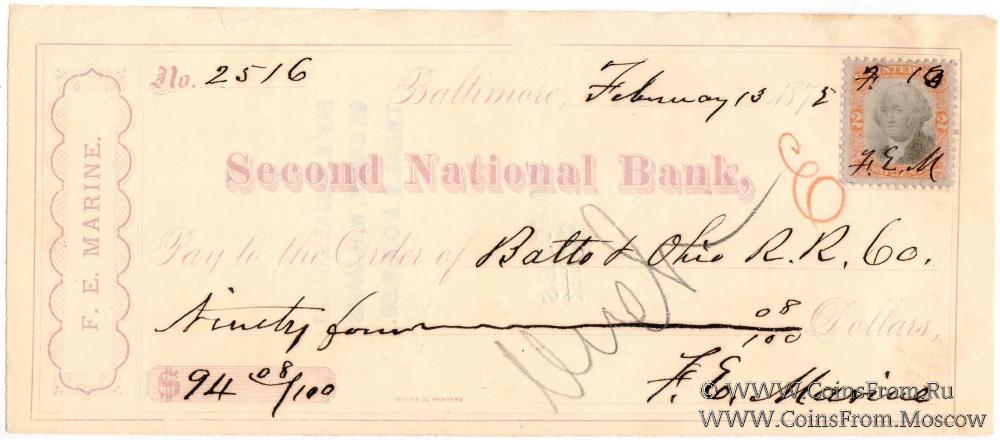 No. 2516
Baltimore, February 13 1872
F. E. MARINE.
F. E. M
Second National Bank,
Pay to the Order of Balto & Ohio R. R. Co.
Ninety four 08/100 Dollars,
$ 94 08/100
F. E. Marine
© WWW.CoinsFrom.Ru
WWW.CoinsFrom.Moscow